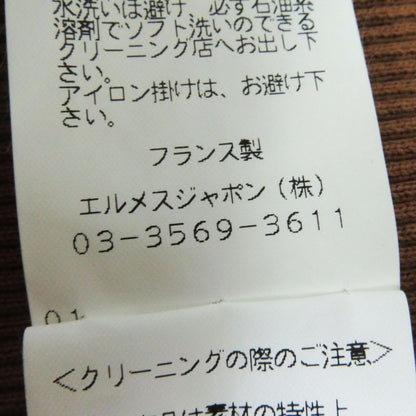 水洗いは避け 必ず石油系
溶剤でソフト洗いのできる
クリーニング店へお出し下
さい。
アイロン掛けは、お避け下
さい。
フランス製
エルメスジャポン(株)
03-3569-3611
01
<クリーニングの際のご注意>
は素材の特性上